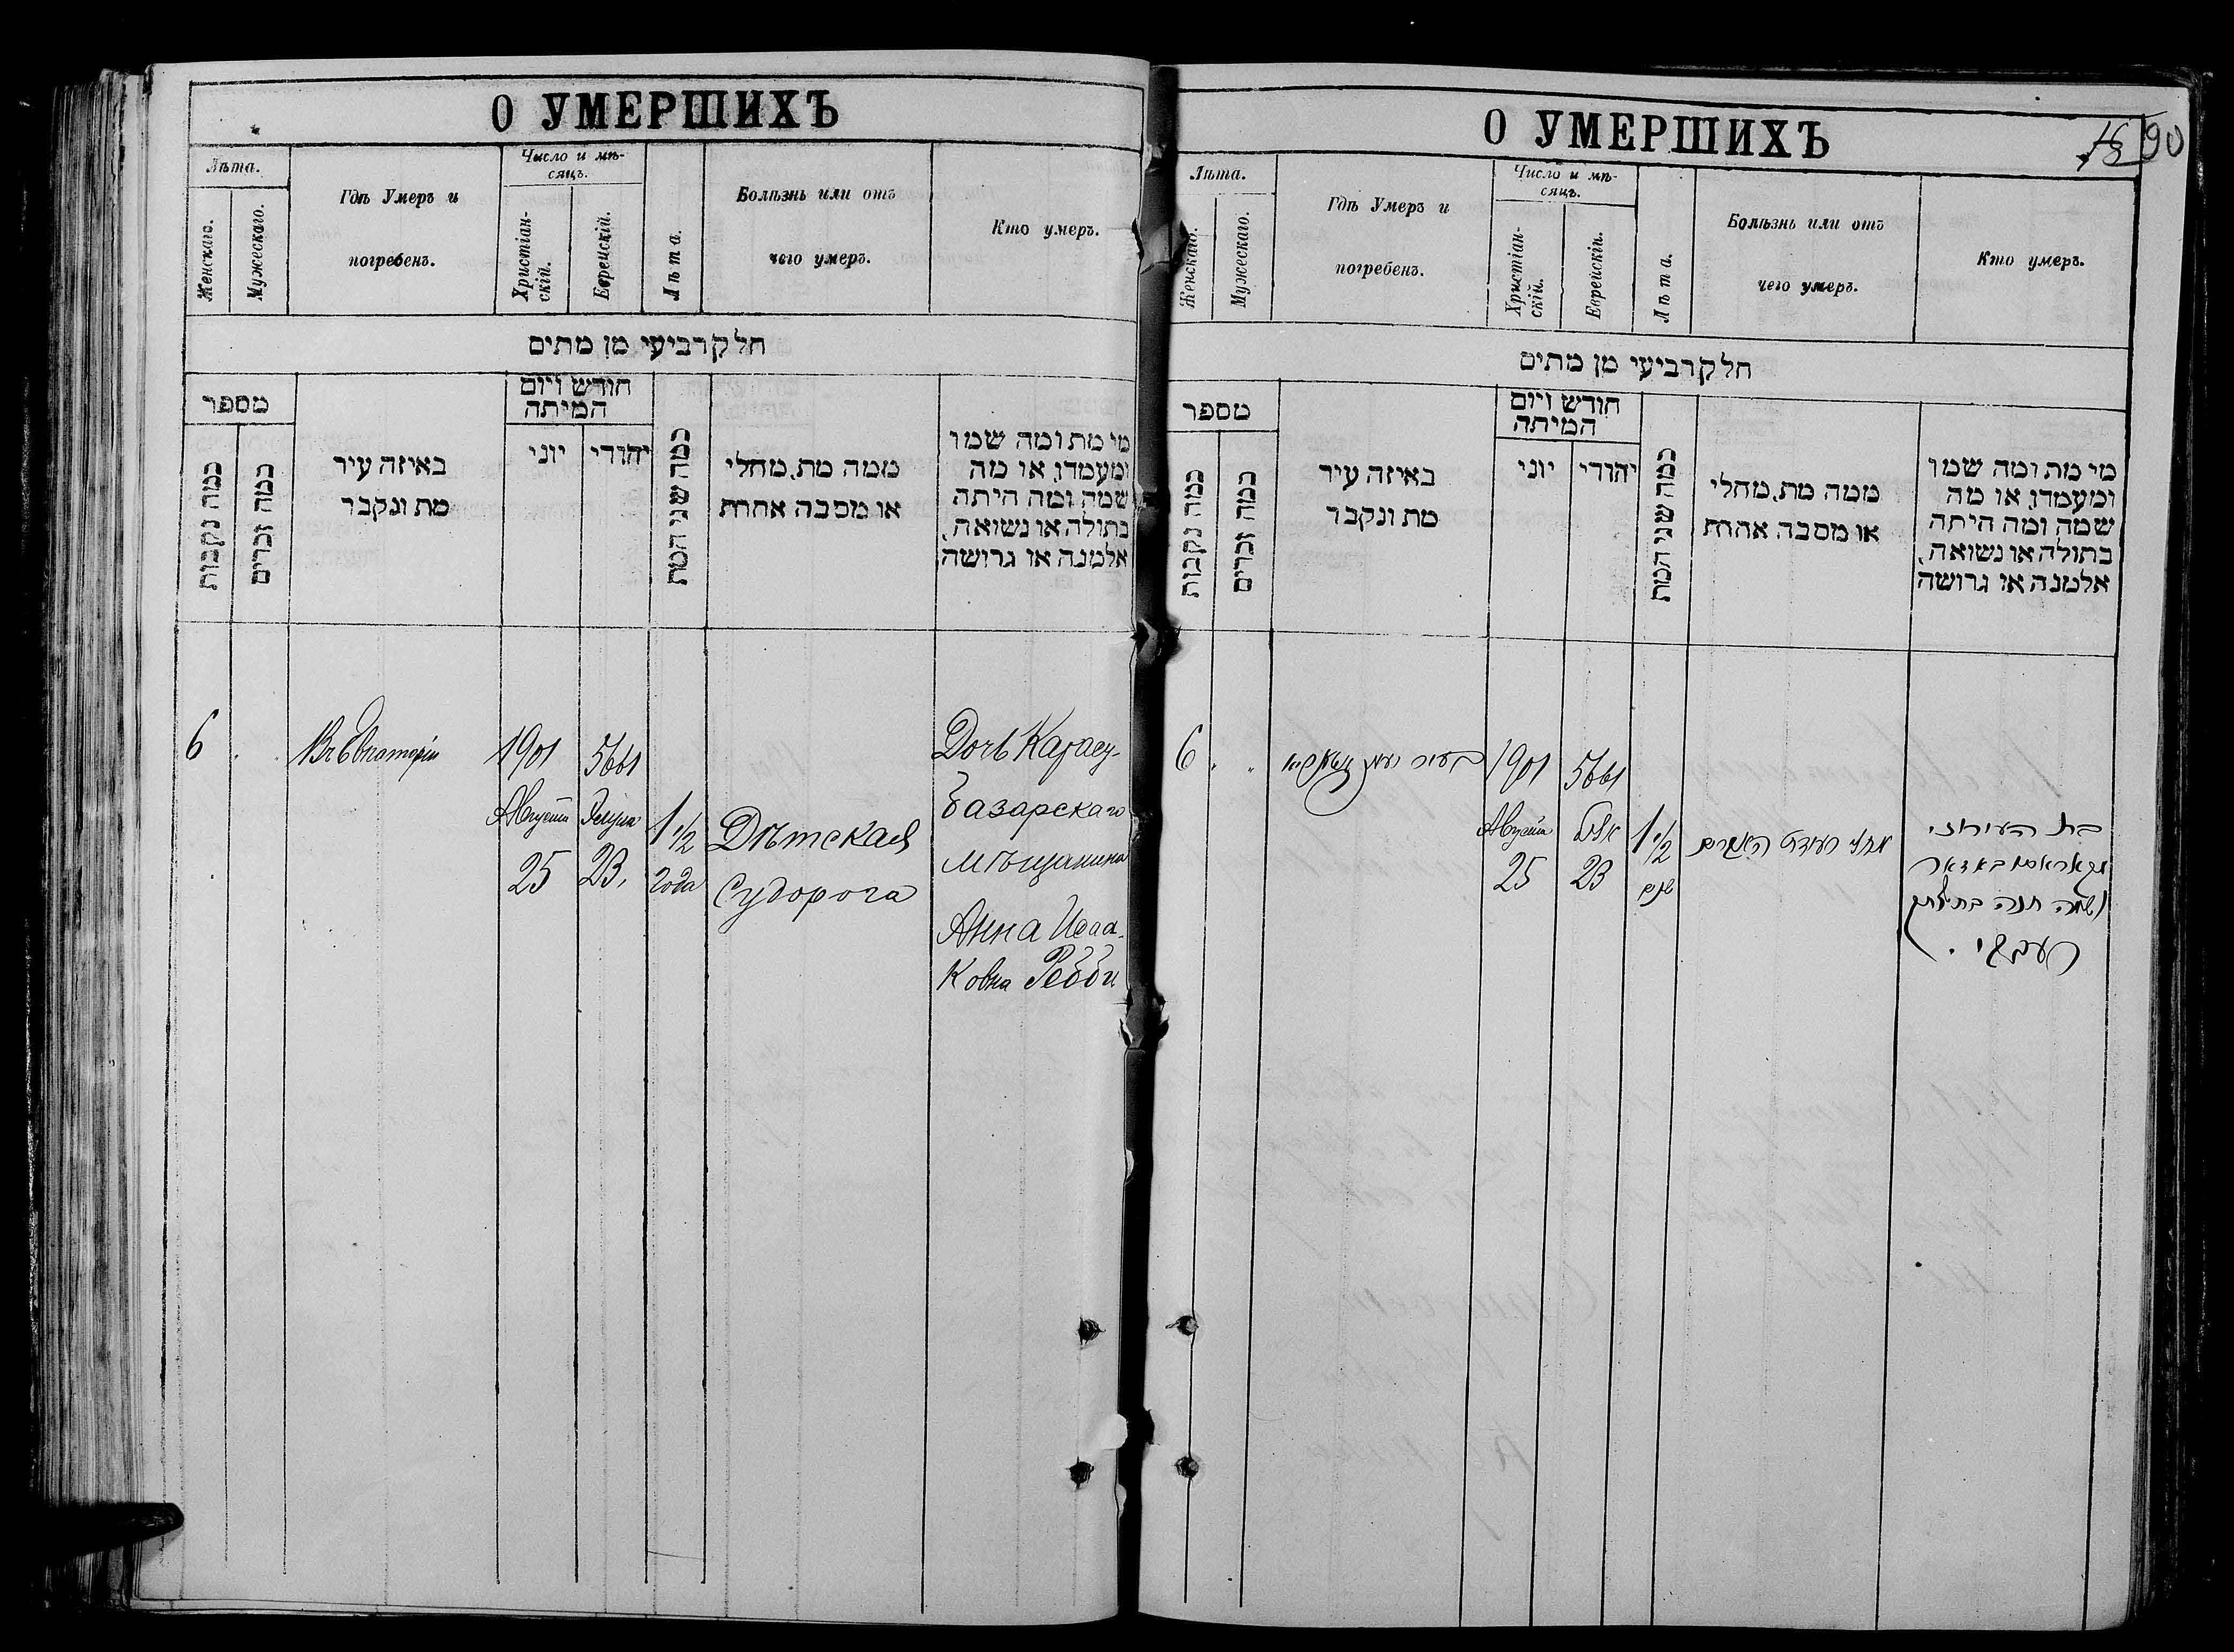 О УМЕРШИХЪ
Лѣта.
Женскаго.
Мужескаго.
Гдѣ Умеръ и
погребенъ.
Число и мѣ-
сяцъ.
Христіан-
скій.
Еврейскій.
Лѣта.
Болѣзнь или отъ
чего умеръ.
Кто умеръ.
חלק רביעי מן מתים
מספר
כמה נקבות
כמה זכרים
באיזה עיר
מת ונקבר
חודש ויום
המיתה
יוני
יהודי
כמה שני המת
ממה מת, מחלי
או מסבה אחרת
מי מת ומה שמו
ומעמדו, או מה
שמה ומה היתה
בתולה או נשואה,
אלמנה או גרושה
6
Въ Евпаторіи
1901
Августа
25
5661
Элула
23.
1 1/2
года
Дѣтская
Судорога
Дочь Карасу-
базарскаго
мѣщанина
Анна Исаа-
ковна Рабби
О УМЕРШИХЪ
90
Лѣта.
Женскаго.
Мужескаго.
Гдѣ Умеръ и
погребенъ.
Число и мѣ-
сяцъ.
Христіан-
скій.
Еврейскій.
Лѣта.
Болѣзнь или отъ
чего умеръ.
Кто умеръ.
חלק רביעי מן מתים
מספר
כמה נקבות
כמה זכרים
באיזה עיר
מת ונקבר
חודש ויום
המיתה
יוני
יהודי
כמה שני המת
ממה מת, מחלי
או מסבה אחרת
מי מת ומה שמו
ומעמדו, או מה
שמה ומה היתה
בתולה או נשואה,
אלמנה או גרושה
6
1901
Августа
25
5661
אלול
23
1 1/2
שנים
בת העירוני
מקאראסובאזאר
ושמה חנה בת יצחק